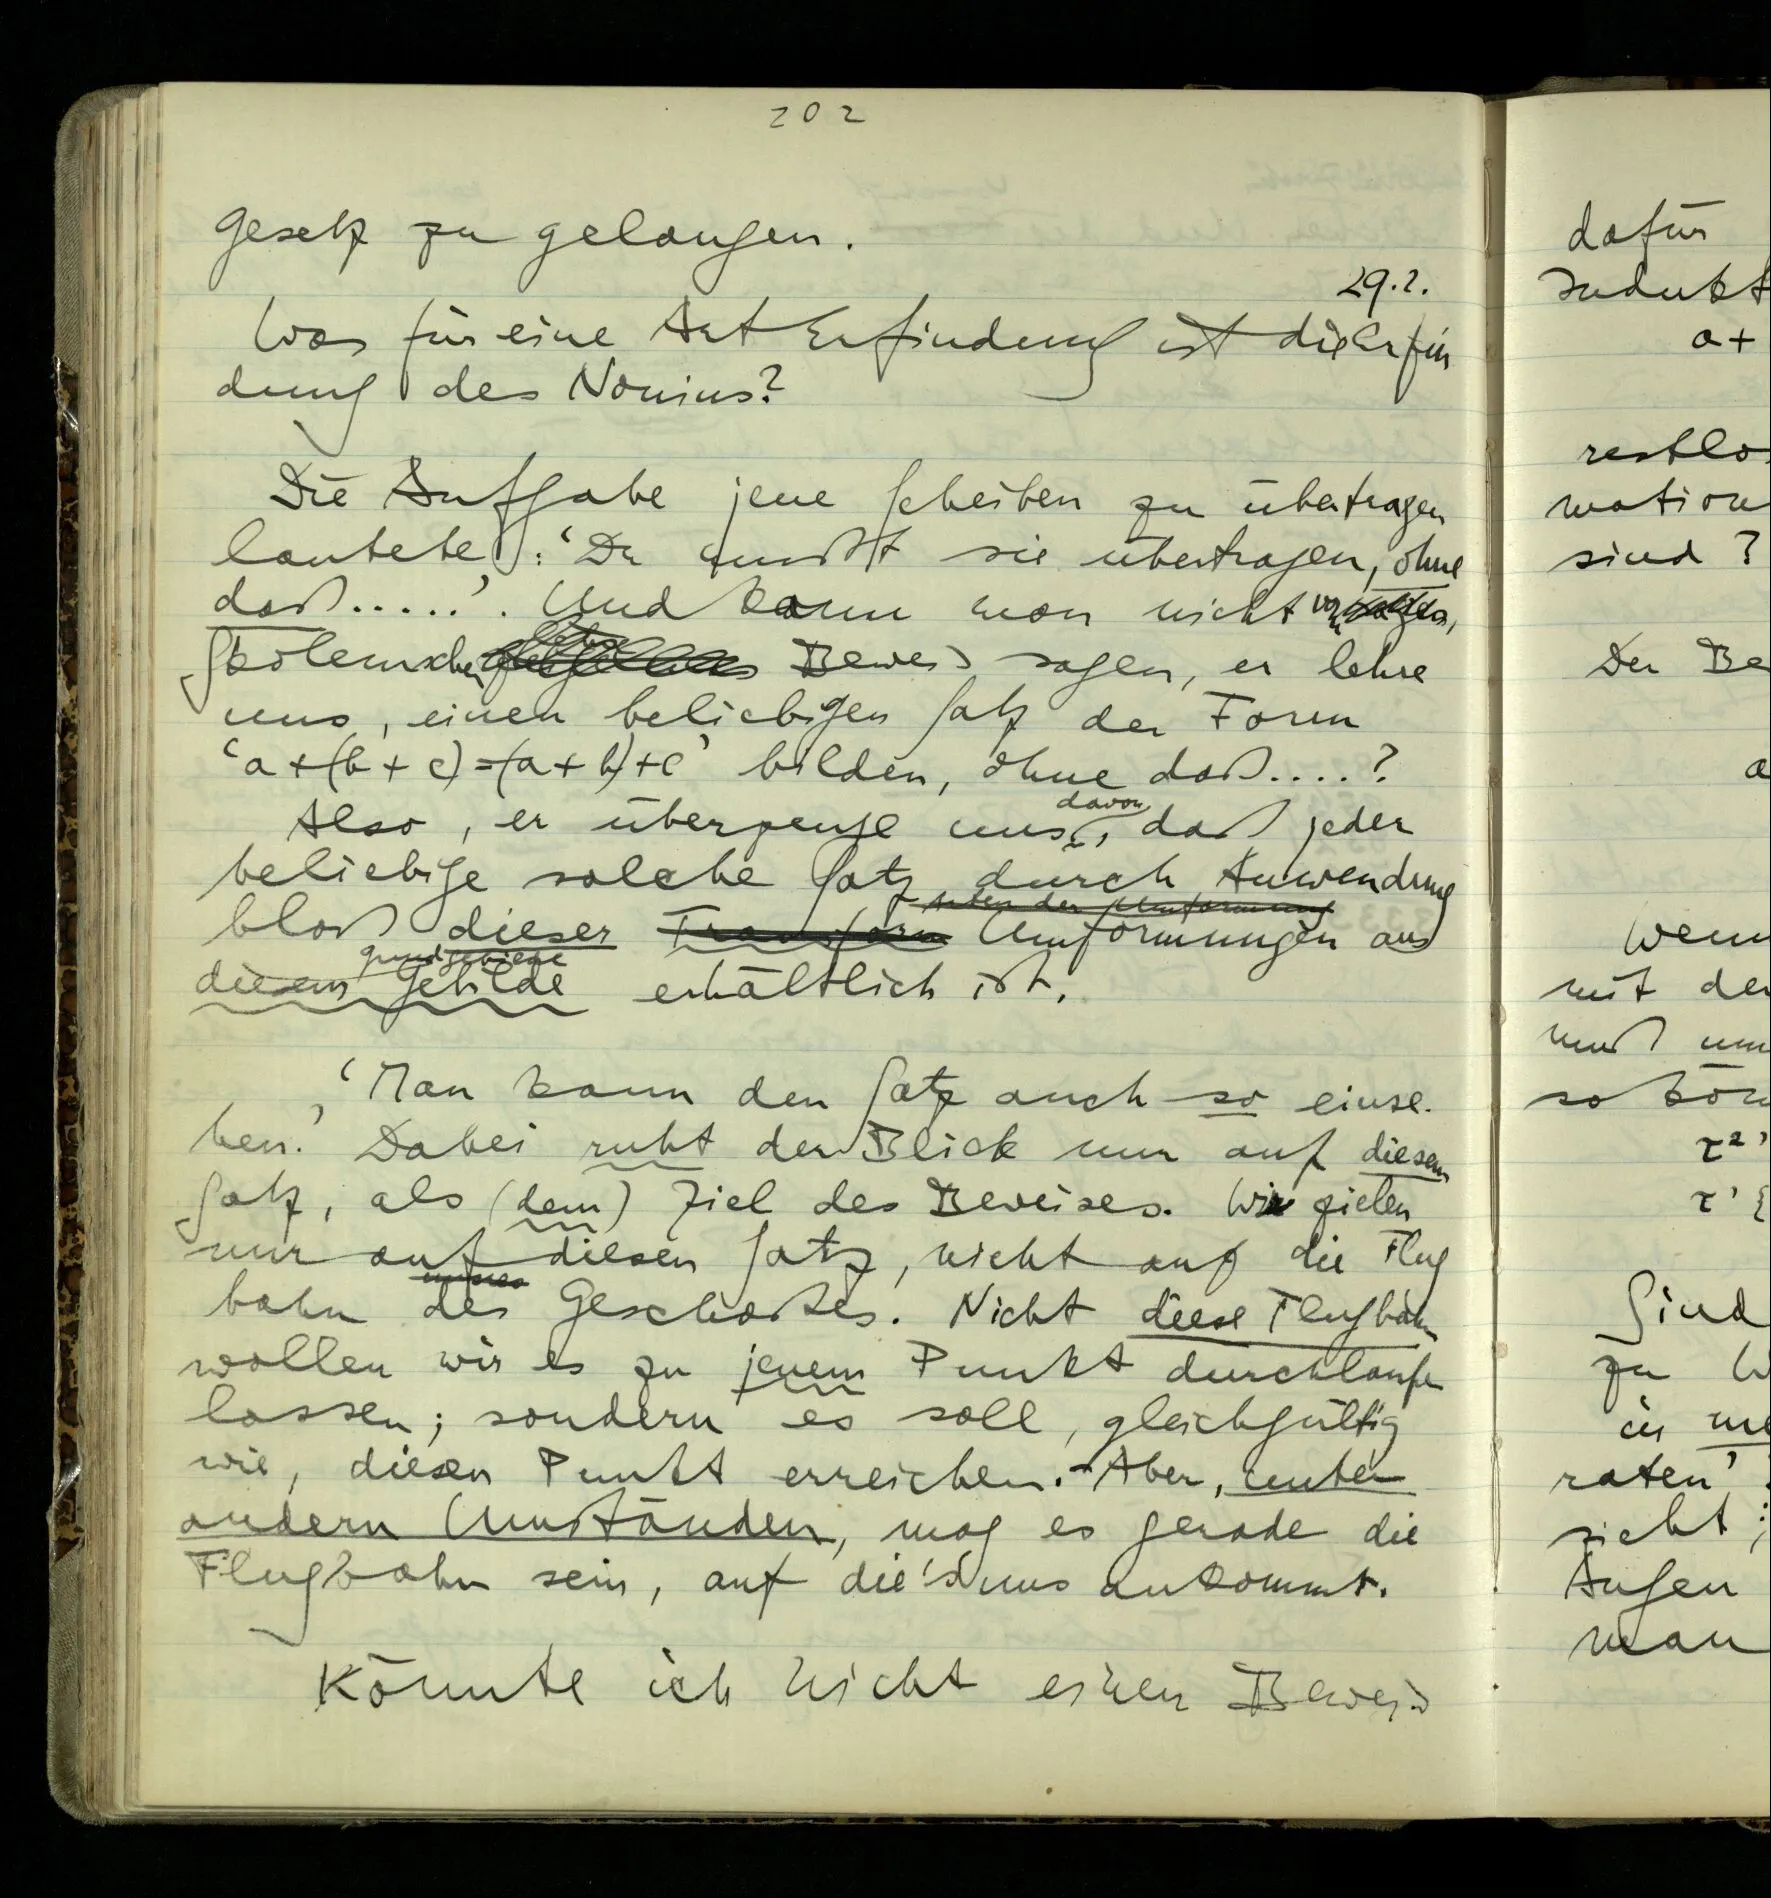 202
Gesetz zu gelangen.
29.2.
Was für eine Art Erfindung ist die Erfin
dung des Nonius?
Die Aufgabe jene Scheiben zu übertragen
lautete: ‘Du mußt sie übertragen, ohne
daß.....’. Und kann man nicht vom
Skolemschen Beweis sagen, er lehre
uns, einen beliebigen Satz der Form
‘a+(b+c)=(a+b)+c’ bilden, ohne daß....?
davon
Also, er überzeuge uns, daß jeder
beliebige solche Satz durch Anwendung
der Umformung
bloß dieser Transform Umformungen aus
diesem Gebilde erhältlich ist.
‘Man kann den Satz auch so einse-
hen.’ Dabei ruht der Blick nur auf diesem
Satz, als (dem) Ziel des Beweises. Wir zielen
nur auf diesen Satz, nicht auf die Flug
unseres
bahn des Geschoßes. Nicht diese Flugbahn
wollen wir es zu jenem Punkt durchlaufen
lassen; sondern es soll, gleichgültig
wie, diesen Punkt erreichen. – Aber, unter
andern Umständen, mag es gerade die
Flugbahn sein, auf die's uns ankommt.
Könnte ich nicht einen Beweis
dafür
Indukt
a+
restlo
mation
sind?
Der Be
a
Wenn
mit der
muß um
so kön
τ²’
τ’{
Sind
zu W
in me
raten’
sicht;
Augen
man